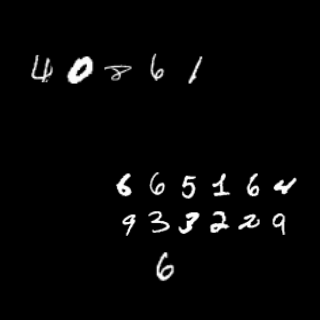 40861
665164
933229
6